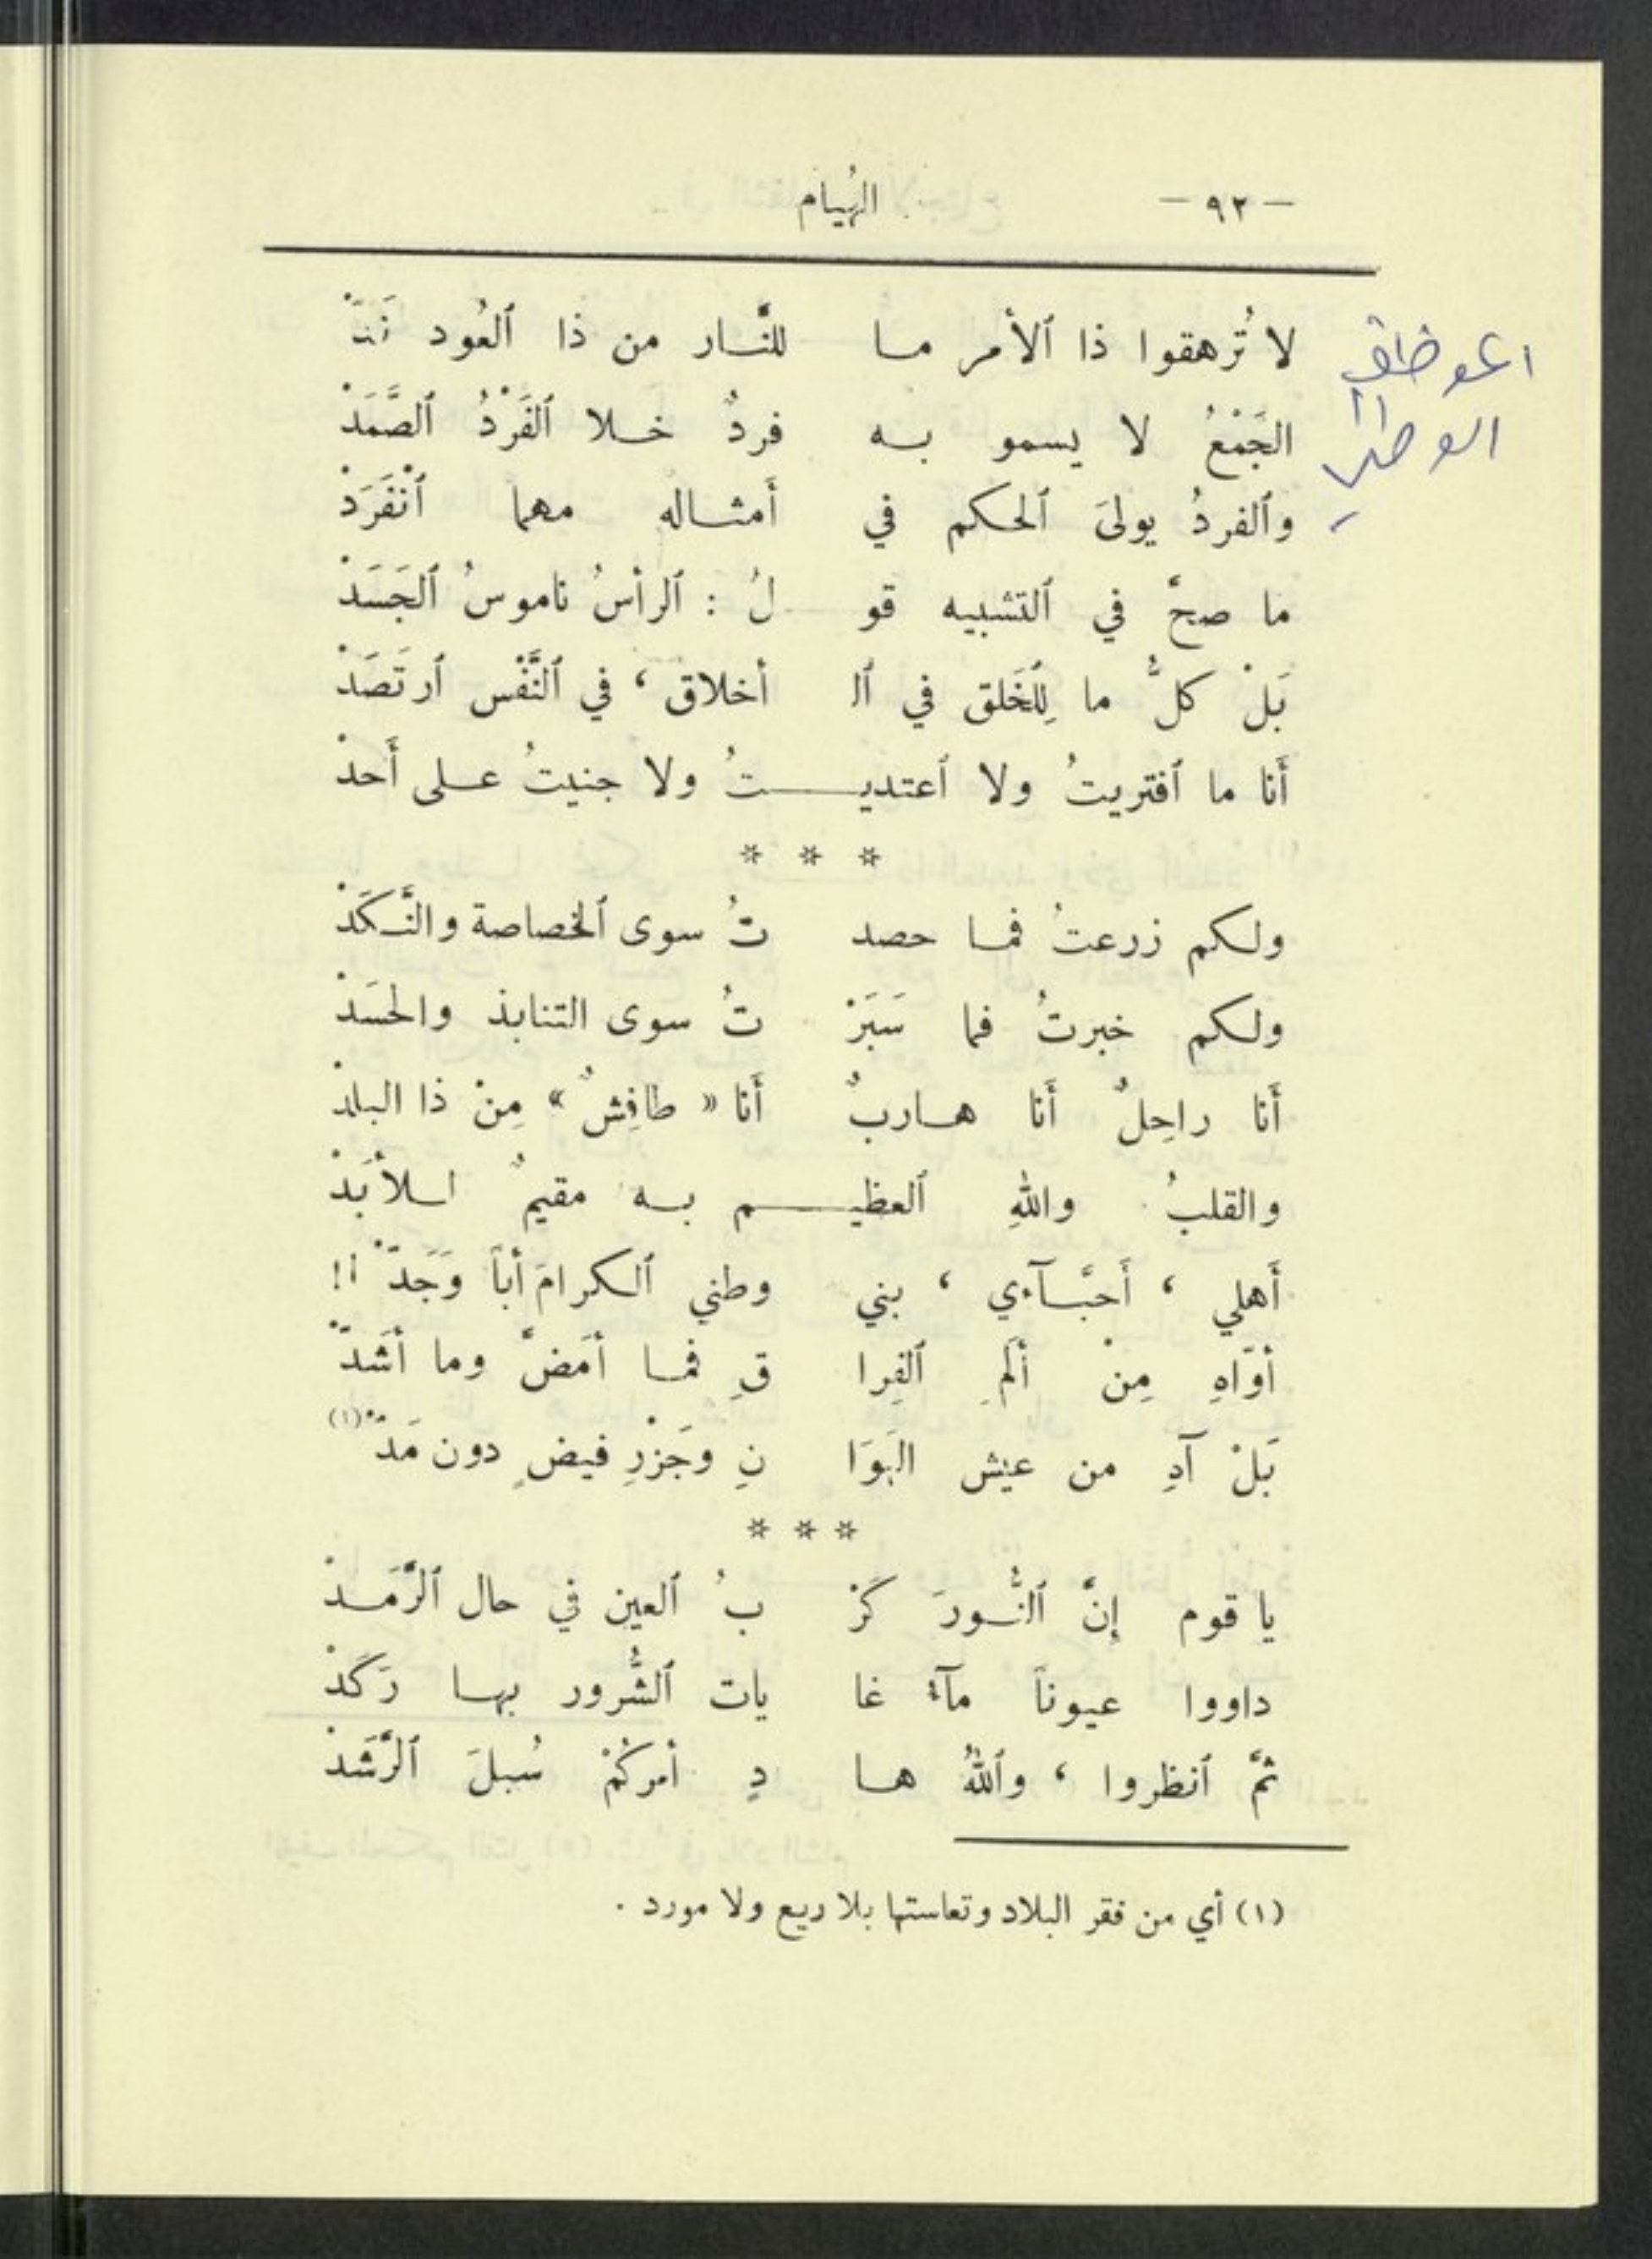 — ٩٢ — الهُيام
لا تُرهقوا ذا ٱلأمر مـا للنَّـار من ذا ٱلعُود نَدّْ
الجَمْعُ لا يسمو بـه فردٌ خـلا ٱلفَرْدُ ٱلصَّمَدْ
وٱلفردُ يولىَ ٱلحكم في أَمثـاله مهما ٱنْفَرَدْ
ما صحَّ في ٱلتشبيه قو لُ : ٱلرأسُ ناموسُ ٱلجَسَدْ
بَلْ كلُّ ما لِلخَلق في ٱلـ أخلاق ، في ٱلنَّفْس ٱرتَصَدْ
أَنا ما ٱفتريتُ ولا ٱعتديـــتُ ولا جنيتُ عـلى أَحدْ
* * *
ولـكم زرعتُ فمـا حصد تُ سوى ٱلخصاصة والنَّـكَدْ
ولـكم خبرتُ فما سَبَرْ تُ سوى التنابذ والحَسَدْ
أَنا راحِلٌ أَنا هـاربٌ أَنا « طافِشٌ » مِنْ ذا البلدْ
والقلبُ واللهِ ٱلعظيـــم بـه مقيمٌ لـلأَبَدْ
أَهلي ، أَحبَّـآءي ، بني وطني ٱلـكرامَ أباً وَجَدّْ !!
أوّاهِ مِنْ ألَمِ ٱلفِرا قِ فمـا أمَضَّ وما أشَدّْ
بَلْ آهِ من عيش الهَوَا نِ وجَزْرِ فيضٍ دون مَدّْ (١)
* * *
يا قوم إنَّ ٱلنُّـورَ كَرْ بُ ٱلعين في حال ٱلرَّمَـدْ
داووا عيوناً مآءُ غا يات ٱلشُّرور بهـا رَكَدْ
ثمَّ ٱنظروا ، وٱللهُ هـا دٍ أمركُمْ سُبلَ ٱلرَّشَدْ
(١) أي من فقر البلاد وتعاستها بلا ريع ولا مورد .